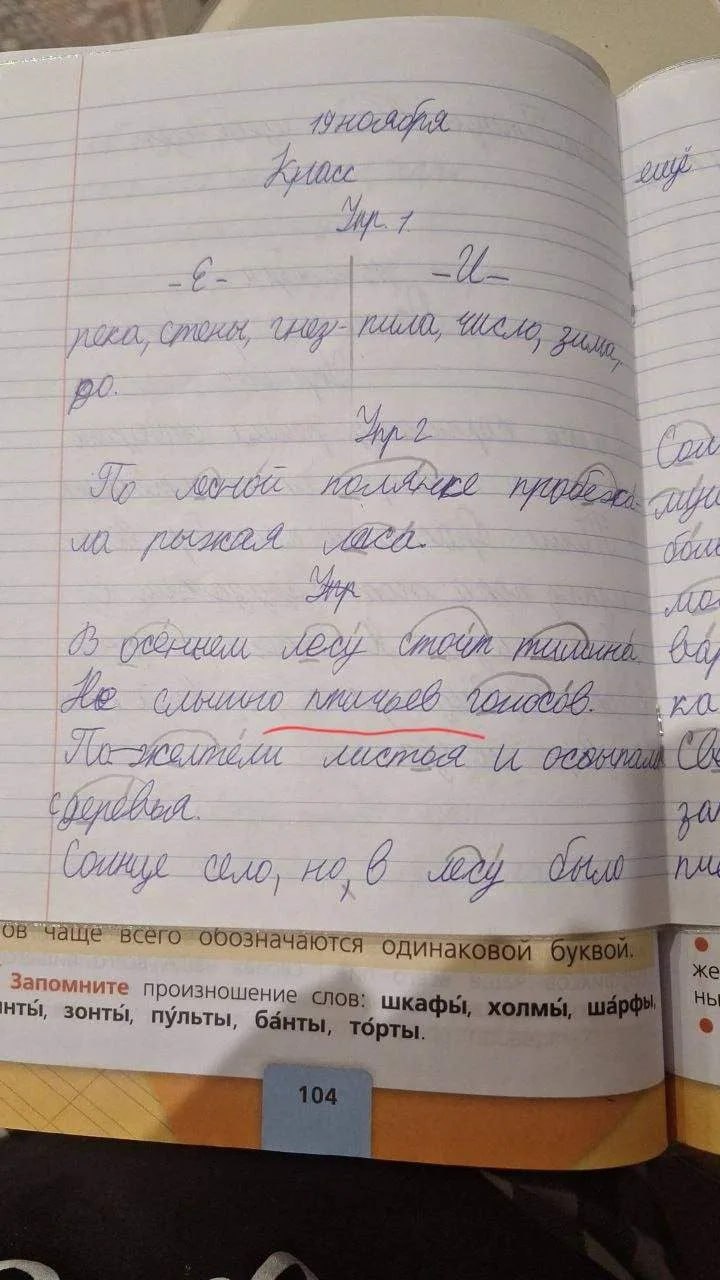 19 ноября
Класс
ещё
Упр. 1.
-Е-
-И-
река, стены, гнез-
пила, число, зима,
до.
Упр 2
По лесной полянке пробежа-
ла рыжая лиса.
Упр
В осеннем лесу стоит тишина
Не слышно птичьев голосов.
По желтели листья и осыпали
с деревья.
Солнце село, но, в лесу было
ов чаще всего обозначаются одинаковой буквой.
Запомните произношение слов: шкафы́, холмы́, ша́рфы,
инты́, зонты́, пу́льты, ба́нты, то́рты.
104